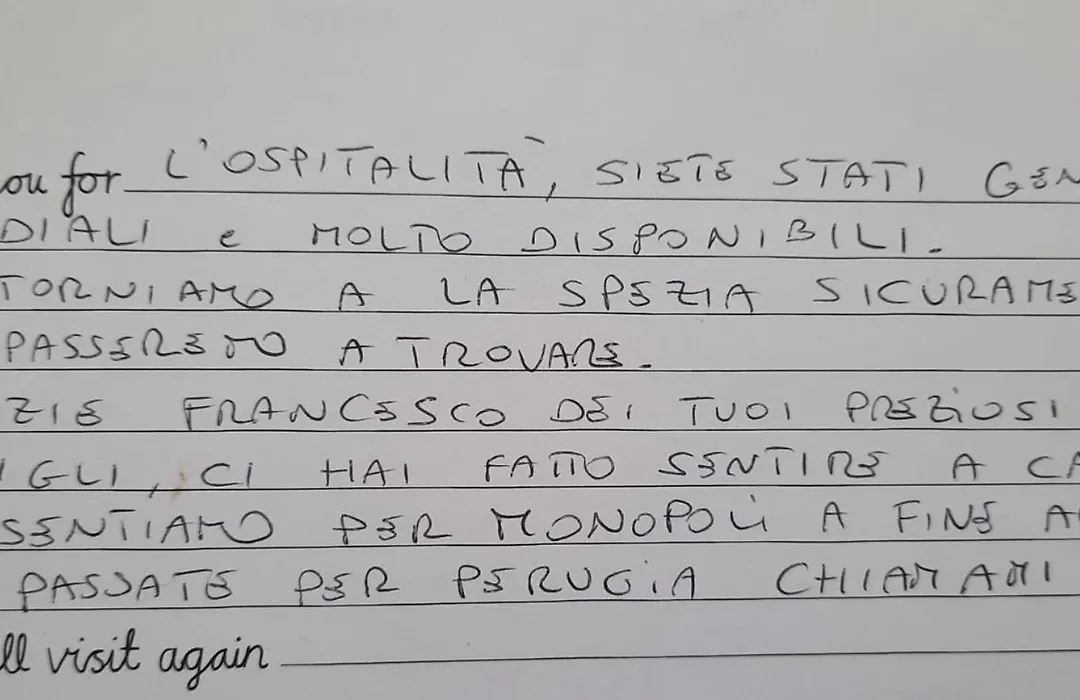 ou for L'OSPITALITÀ, SIETE STATI GEN
DIALI e MOLTO DISPONIBILI.
TORNIAMO A LA SPEZIA SICURAME
PASSEREMO A TROVARE.
ZIE FRANCESCO DEI TUOI PREZIOSI
IGLI, CI HAI FATTO SENTIRE A CA
SENTIAMO PER MONOPOLI A FINE A
PASSATE PER PERUGIA CHIAMAMI
ll visit again